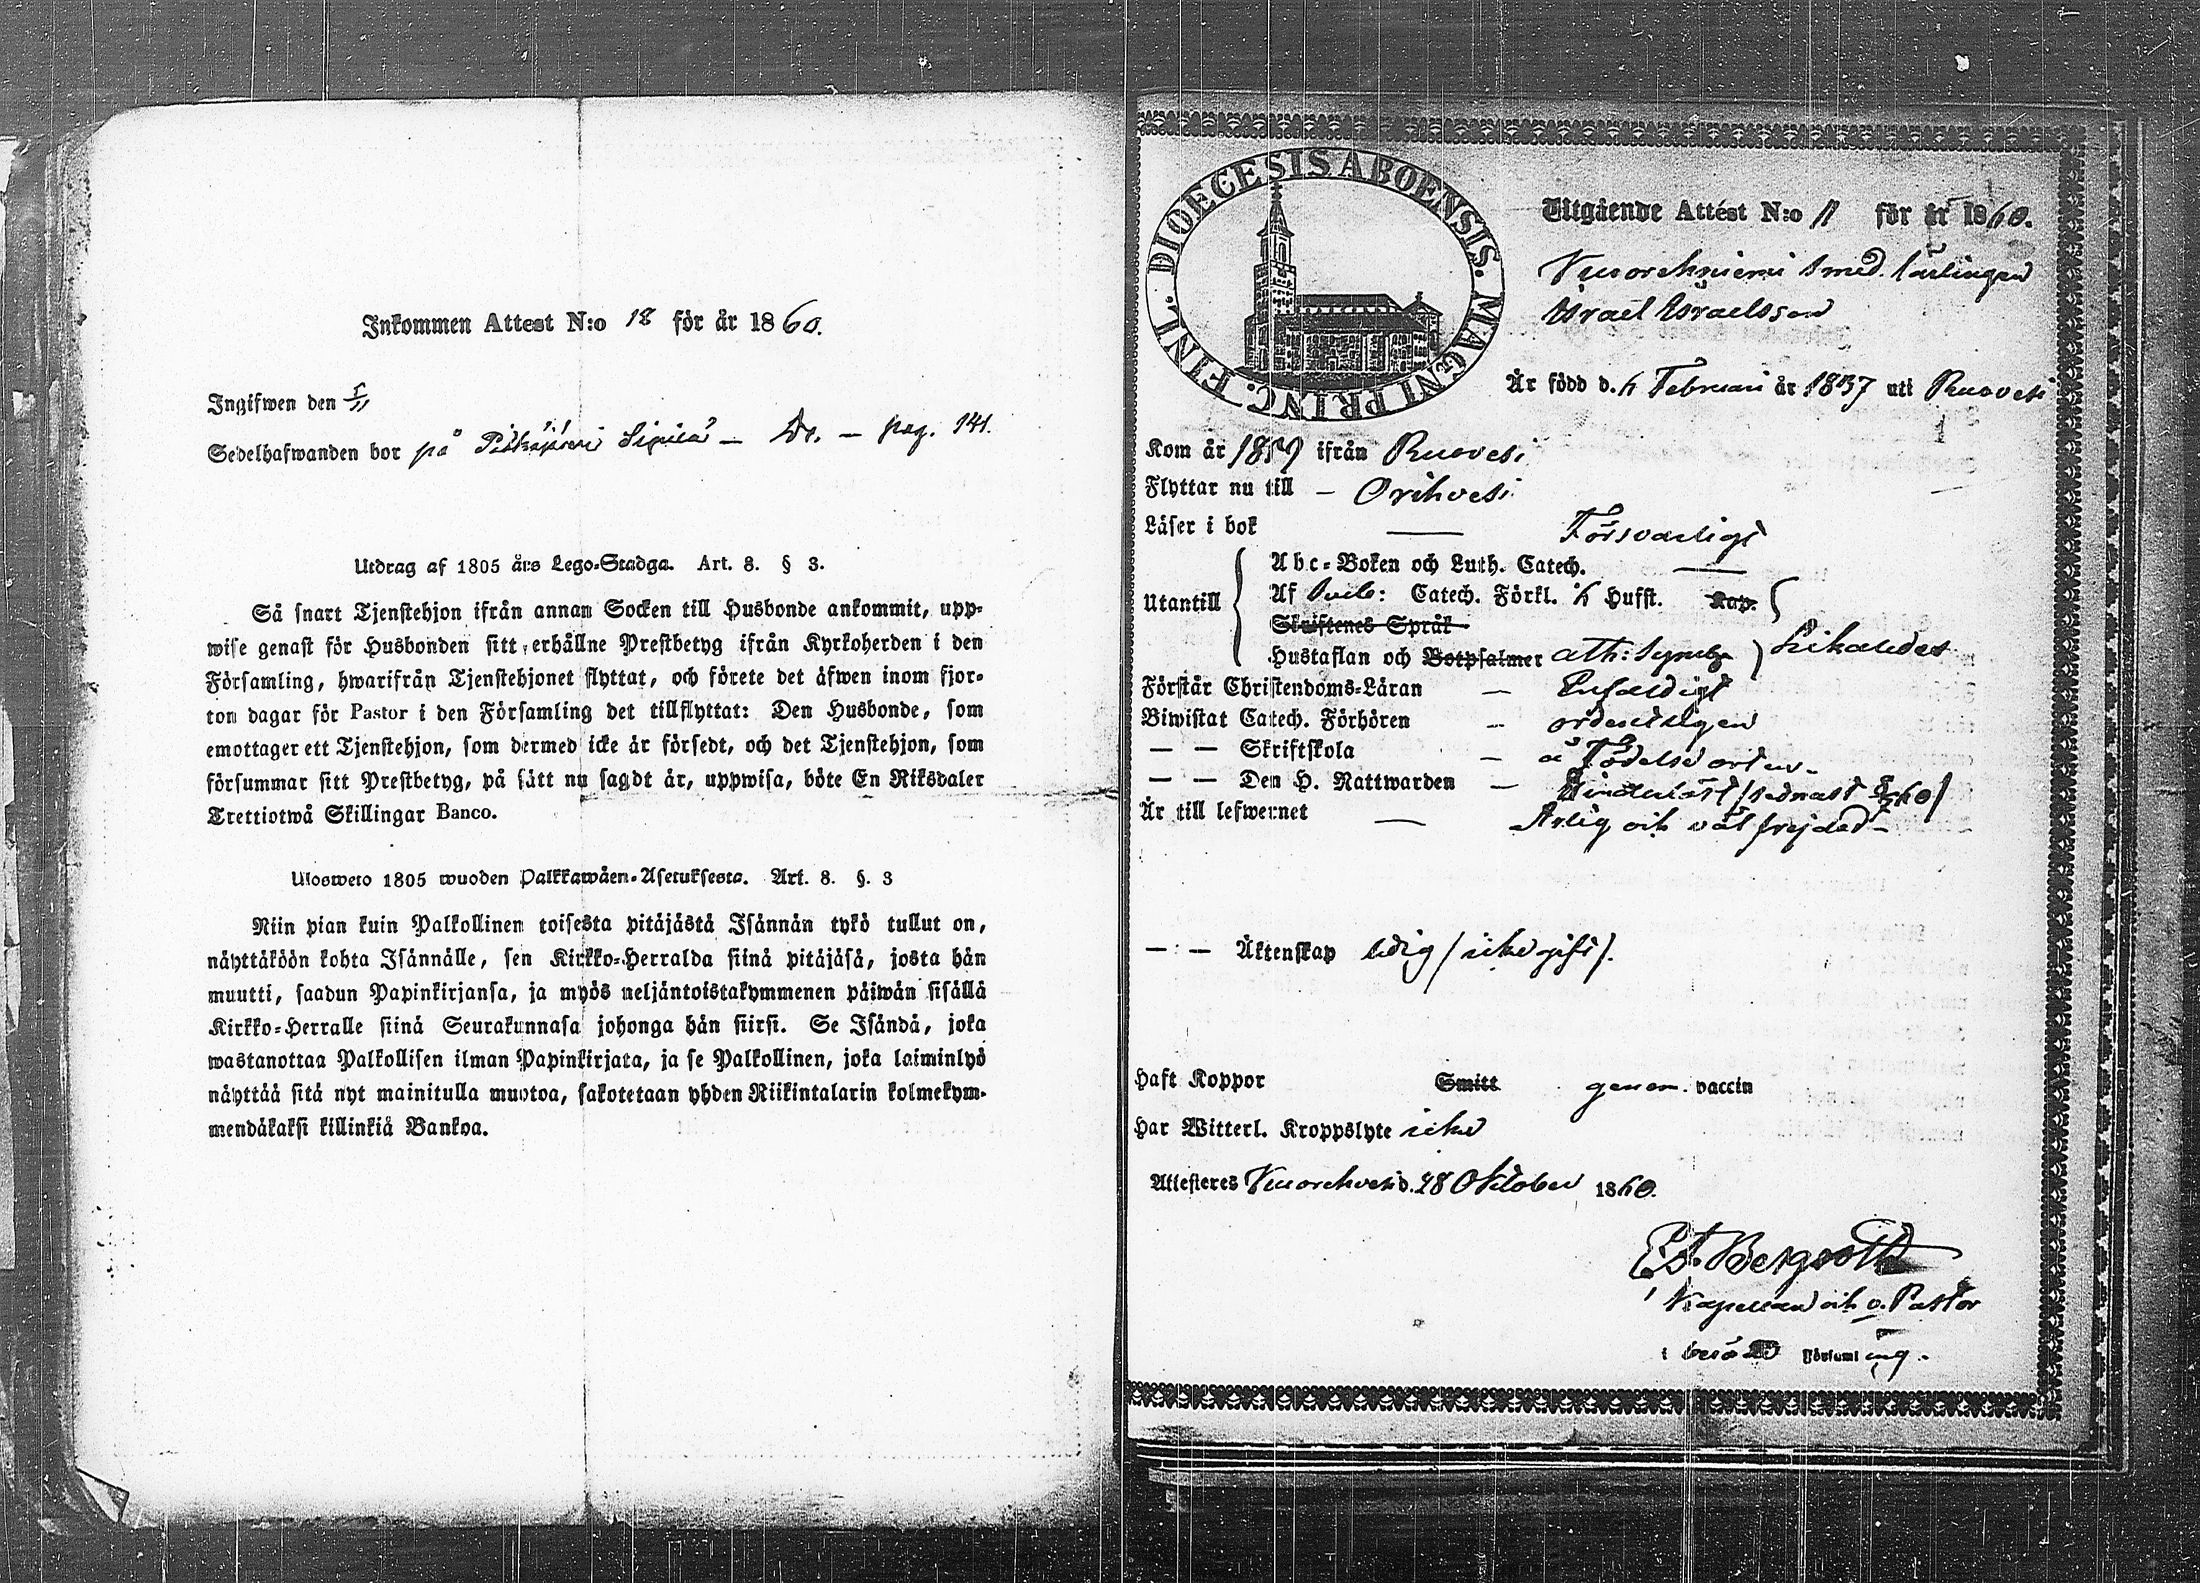 Inkommen Attest N:o 18 för år 1860.
Ingifwen den 5/11
Sedelhafwanden bor på Pitkäjärwi Sipilä – Dr. – pag. 141.
Utdrag af 1805 års Lego-Stadga. Art. 8. § 3.
Så snart Tjenstehjon ifrån annan Socken till Husbonde ankommit, upp-
wise genast för Husbonden sitt erhållne Prestbetyg ifrån Kyrkoherden i den
Församling, hwarifrån Tjenstehjonet flyttat, och förete det äfwen inom fjor-
ton dagar för Pastor i den Församling det tillflyttat: Den Husbonde, som
emottager ett Tjenstehjon, som dermed icke är försedt, och det Tjenstehjon, som
försummar sitt Prestbetyg, på sätt nu sagdt är, uppwisa, böte En Riksdaler
Trettiotwå Skillingar Banco.
Ulosweto 1805 wuoden Palkkawäen-Asetuksesta. Art. 8. §. 3
Niin pian kuin Palkollinen toisesta pitäjästä Isännän tykö tullut on,
näyttäköön kohta Isännälle, sen Kirkko-Herralda siinä pitäjäsä, josta hän
muutti, saadun Papinkirjansa, ja myös neljäntoistakymmenen päiwän sisällä
Kirkko-Herralle siinä Seurakunnasa johonga hän siirsi. Se Isändä, joka
wastanottaa Palkollisen ilman Papinkirjata, ja se Palkollinen, joka laiminlyö
näyttää sitä nyt mainitulla muotoa, sakotetaan yhden Riikintalarin kolmekym-
mendäkaksi killinkiä Bankoa.
DIOECESIS ABOENSIS. MAGNI PRINC. FINL.
Utgående Attést N:o för år 1860.
Vuorehniemi smed. lärlingen
Israel Israelsson
Är född d. Februari år 1837 uti Ruovesi
Kom år 1859 ifrån Ruovesi
Flyttar nu till – Orihvesi
Läser i bok — Försvarligt
Abc-Boken och Luth. Catech. —
Utantill Af Svib: Catech. Förkl. Hufst. Kap.
Skriftenes Språk
Hustaflan och Botpsalmer ath: Symb. Likaledes
Förstår Christendoms-Läran – Enfaldigt
Biwistat Catech. Förhören – ordentligen
— — Skriftskola – å Födelse orten
— — Den H. Nattwarden –
Är till lefwernet — Ärlig och väl frejdad –
— — Äktenskap ledig / icke gift /.
Haft Koppor Smitt genom vaccin
Har Witterl. Kroppslyte icke
Attesteres Vuorehvesi d. 28 Oktober 1860.
Bergroth
Kapellan och v. Pastor
i Församling.